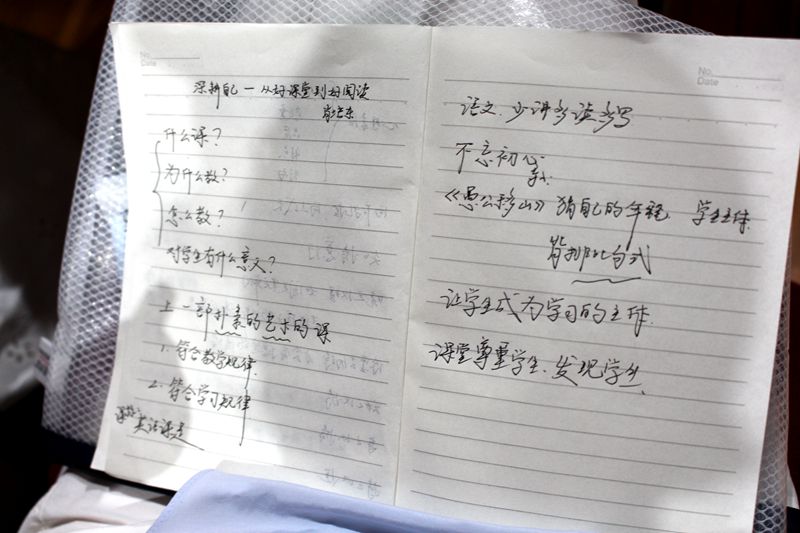 No.
Date
深耕自己一从好课堂到好阅读
什么课？
为什么教？
怎么教？
对学生有什么意义？
上一部朴素的艺术的课
1. 符合教学规律.
2. 符合学习规律
英语课是
No.
Date
语文.少讲多读多写
不忘初心
《愚公移山》 自己的年轻 学生主体
让学生成为学习的主体.
课堂尊重学生.发现学生.